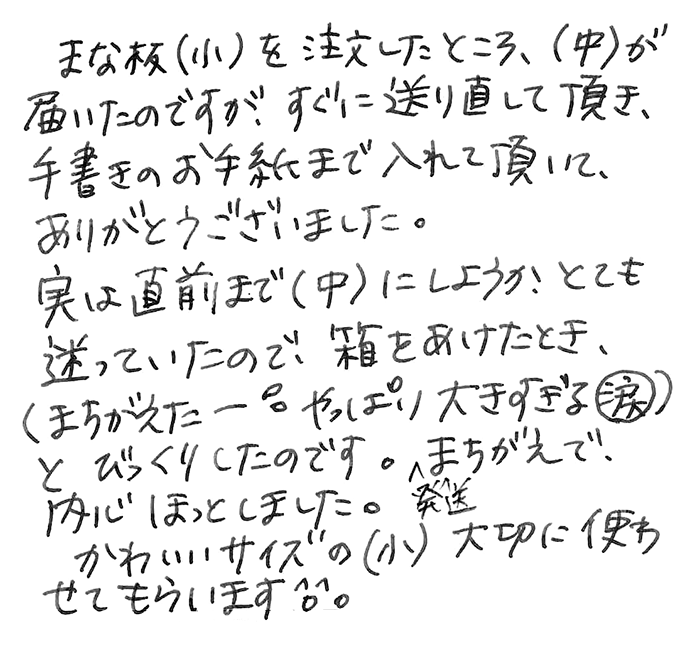 まな板(小)を注文したところ、(中)が
届いたのですが、すぐに送り直して頂き、
手書きのお手紙まで入れて頂いて、
ありがとうございました。
実は直前まで(中)にしようか、とても
迷っていたので、箱をあけたとき、
(まちがえたー。。やっぱり大きすぎる涙)
とびっくりしたのです。発送まちがえで、
内心ほっとしました。
かわいいサイズの(小)大切に使わ
せてもらいます^o^。